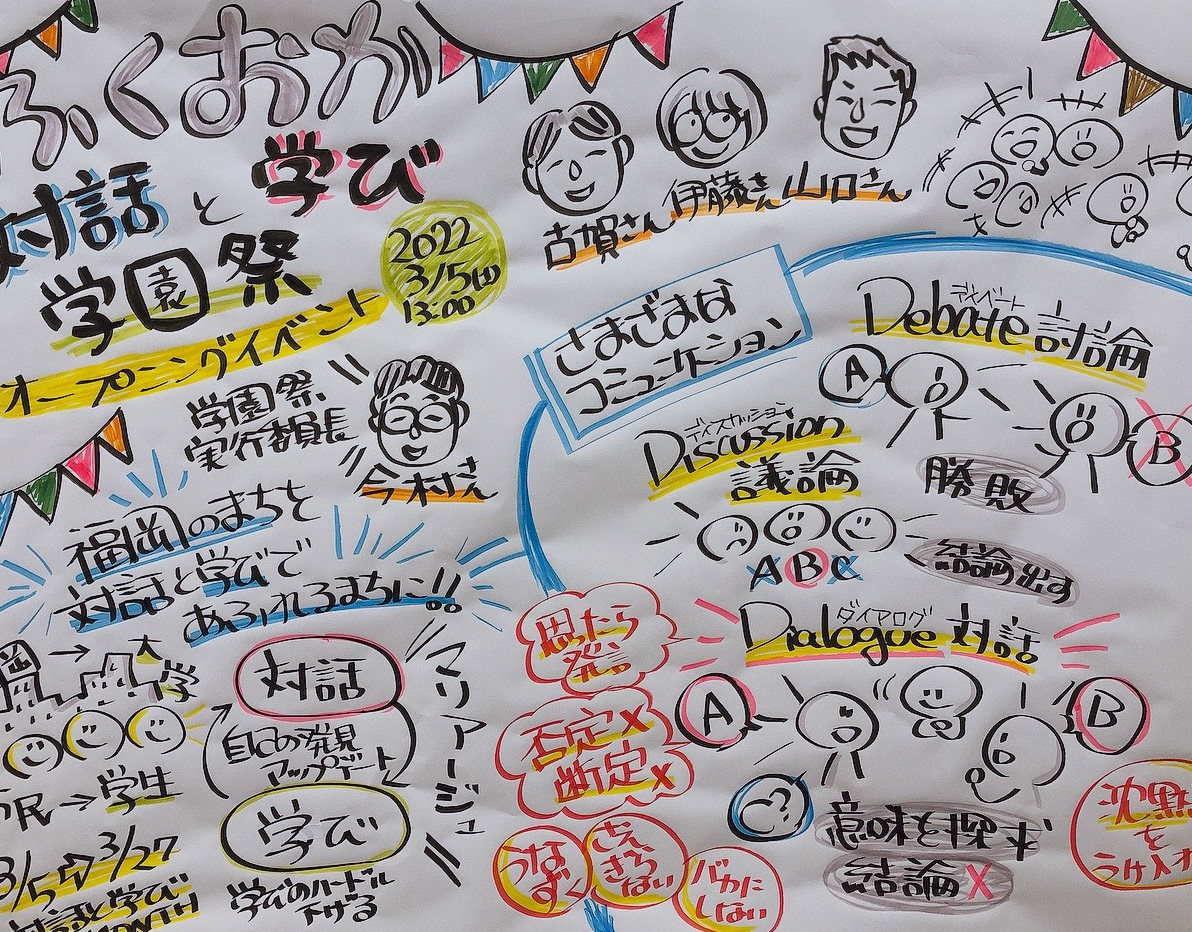 ふくおか
対話と学び
学園祭
オープニングイベント
2022
3/5(土)
13:00
学園祭
実行委員長
今村さん
古賀さん
伊藤さん
山口さん
福岡のまちを
対話と学びで
あふれるまちに!!
学
市民→学生
3/5→3/27
対話と学び
MONTH
対話
自己の発見
アップデート
学び
学びのハードル
下げる
マリアージュ
さまざまな
コミュニケーション
ディベート
Debate 討論
A
B
勝敗
ディスカッション
Discussion
議論
A B C
結論出す
ダイアログ
Dialogue 対話
A
B
C?
意味を探す
結論X
思ったら
発言
否定X
断定X
うなずく
さえぎらない
バカに
しない
沈黙
を
うけ入れ